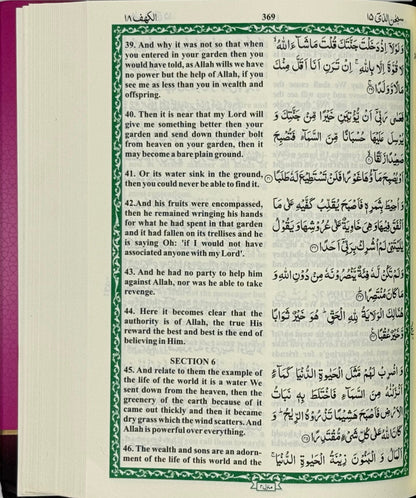 الكهف ١٨
369
سبحن الذی ١٥
39. And why it was not so that when
you entered in your garden then you
would have told, as Allah wills we have
no power but the help of Allah, if you
see me as less than you in wealth and
offspring.
40. Then it is near that my Lord will
give me something better then your
garden and send down thunder bolt
from heaven on your garden, then it
may become a bare plain ground.
41. Or its water sink in the ground,
then you could never be able to find it.
42.And his fruits were encompassed,
then he remained wringing his hands
for what he had spent in that garden
and it had fallen on its trellises and he
is saying Oh: 'if I would not have
associated anyone with my Lord'.
43. And he had no party to help him
against Allah, nor was he able to take
revenge.
44. Here it becomes clear that the
authority is of Allah, the true His
reward the best and best is the end of
believing in Him.
SECTION 6
45. And relate to them the example of
the life of the world it is a water We
sent down from the heaven, then the
greenery of the earth because of it
came out thickly and then it became
dry grass which the wind scatters. And
Allah is powerful over everything.
46. The wealth and sons are an adorn-
ment of the life of this world and the
وَلَوْلَاۤ اِذْ دَخَلْتَ جَنَّتَكَ قُلْتَ مَا شَآءَ اللهُ ۙ
لَا قُوَّةَ اِلَّا بِاللهِ ۚ اِنْ تَرَنِ اَنَا اَقَلَّ مِنْكَ
مَالًا وَّوَلَدًا
فَعَسٰى رَبِّيْۤ اَنْ يُّؤْتِيَنِ خَيْرًا مِّنْ جَنَّتِكَ وَ
يُرْسِلَ عَلَيْهَا حُسْبَانًا مِّنَ السَّمَآءِ فَتُصْبِحَ
صَعِيْدًا زَلَقًا
اَوْ يُصْبِحَ مَآؤُهَا غَوْرًا فَلَنْ تَسْتَطِيْعَ لَهٗ طَلَبًا
وَ اُحِيْطَ بِثَمَرِهٖ فَاَصْبَحَ يُقَلِّبُ كَفَّيْهِ عَلٰى مَاۤ
اَنْفَقَ فِيْهَا وَهِيَ خَاوِيَةٌ عَلٰى عُرُوْشِهَا وَيَقُوْلُ
يٰلَيْتَنِيْ لَمْ اُشْرِكْ بِرَبِّيْۤ اَحَدًا
وَلَمْ تَكُنْ لَّهٗ فِئَةٌ يَّنْصُرُوْنَهٗ مِنْ دُوْنِ اللهِ وَ
مَا كَانَ مُنْتَصِرًا
هُنَالِكَ الْوَلَايَةُ لِلّٰهِ الْحَقِّ ؕ هُوَ خَيْرٌ ثَوَابًا
وَّ خَيْرٌ عُقْبًا
وَ اضْرِبْ لَهُمْ مَّثَلَ الْحَيٰوةِ الدُّنْيَا كَمَآءٍ
اَنْزَلْنٰهُ مِنَ السَّمَآءِ فَاخْتَلَطَ بِهٖ نَبَاتُ
الْاَرْضِ فَاَصْبَحَ هَشِيْمًا تَذْرُوْهُ الرِّيٰحُ ؕ وَ
كَانَ اللهُ عَلٰى كُلِّ شَيْءٍ مُّقْتَدِرًا
اَلْمَالُ وَ الْبَنُوْنَ زِيْنَةُ الْحَيٰوةِ الدُّنْيَا ۚ